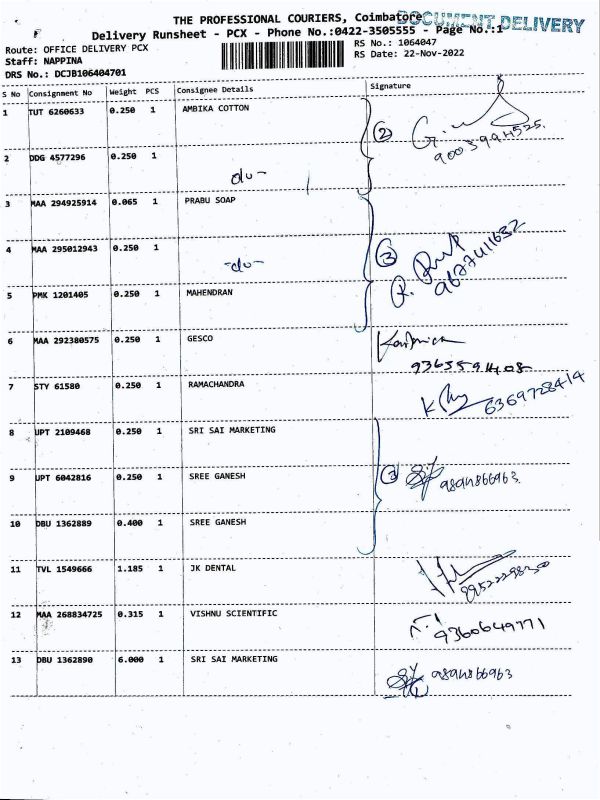 THE PROFESSIONAL COURIERS, Coimbatore
DOCUMENT DELIVERY
Delivery Runsheet - PCX - Phone No.:0422-3505555 - Page No.:1
Route: OFFICE DELIVERY PCX
RS No.: 1064047
Staff: NAPPINA
RS Date: 22-Nov-2022
DRS No.: DCJB106404701
S No Consignment No Weight PCS Consignee Details Signature
1 TUT 6260633 0.250 1 AMBIKA COTTON
2 9003994525
2 DDG 4577296 0.250 1
-do-
3 MAA 294925914 0.065 1 PRABU SOAP
4 MAA 295012943 0.250 1
-do-
3 9677411632
5 PMK 1201405 0.250 1 MAHENDRAN
6 MAA 292380575 0.250 1 GESCO
9363559408
7 STY 61580 0.250 1 RAMACHANDRA
6369728414
8 UPT 2109468 0.250 1 SRI SAI MARKETING
9 UPT 6042816 0.250 1 SREE GANESH
3 9894866963
10 DBU 1362889 0.400 1 SREE GANESH
11 TVL 1549666 1.185 1 JK DENTAL
12 MAA 268834725 0.315 1 VISHNU SCIENTIFIC
9360649771
13 DBU 1362890 6.000 1 SRI SAI MARKETING
9894866963